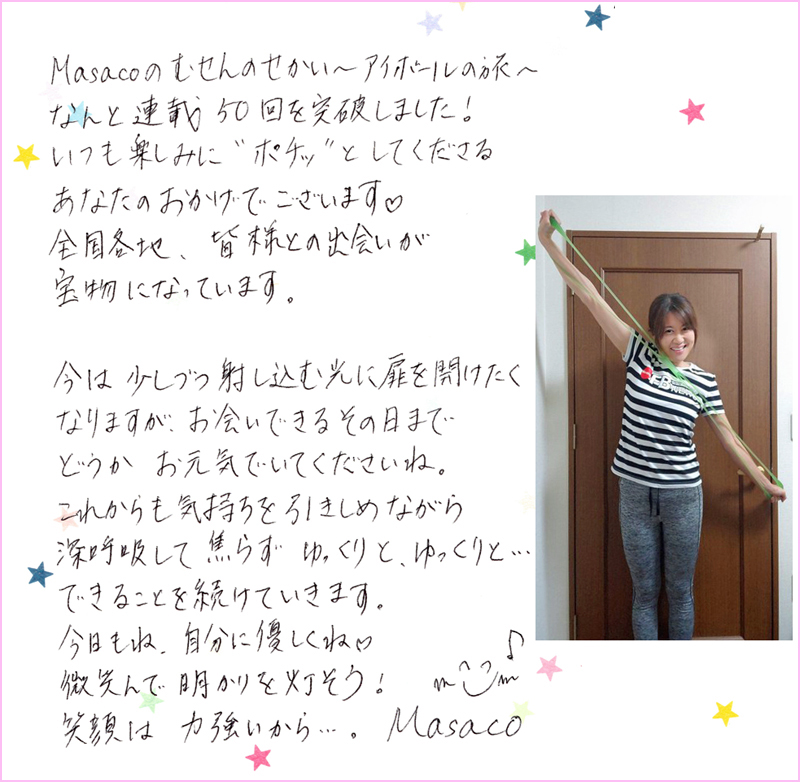 Masacoのむせんのせかい～アイボールの旅～
なんと連載50回を突破しました！
いつも楽しみに“ポチッ”としてくださる
あなたのおかげでございます♡
全国各地、皆様との出会いが
宝物になっています。
今は少しづつ射し込む光に扉を開けたく
なりますが、お会いできるその日まで
どうか お元気でいてくださいね。
これからも気持ちを引きしめながら
深呼吸して焦らず ゆっくりと、ゆっくりと…
できることを続けていきます。
今日もね、自分に優しくね♡
微笑んで明かりを灯そう！
笑顔は 力強いから…。 Masaco